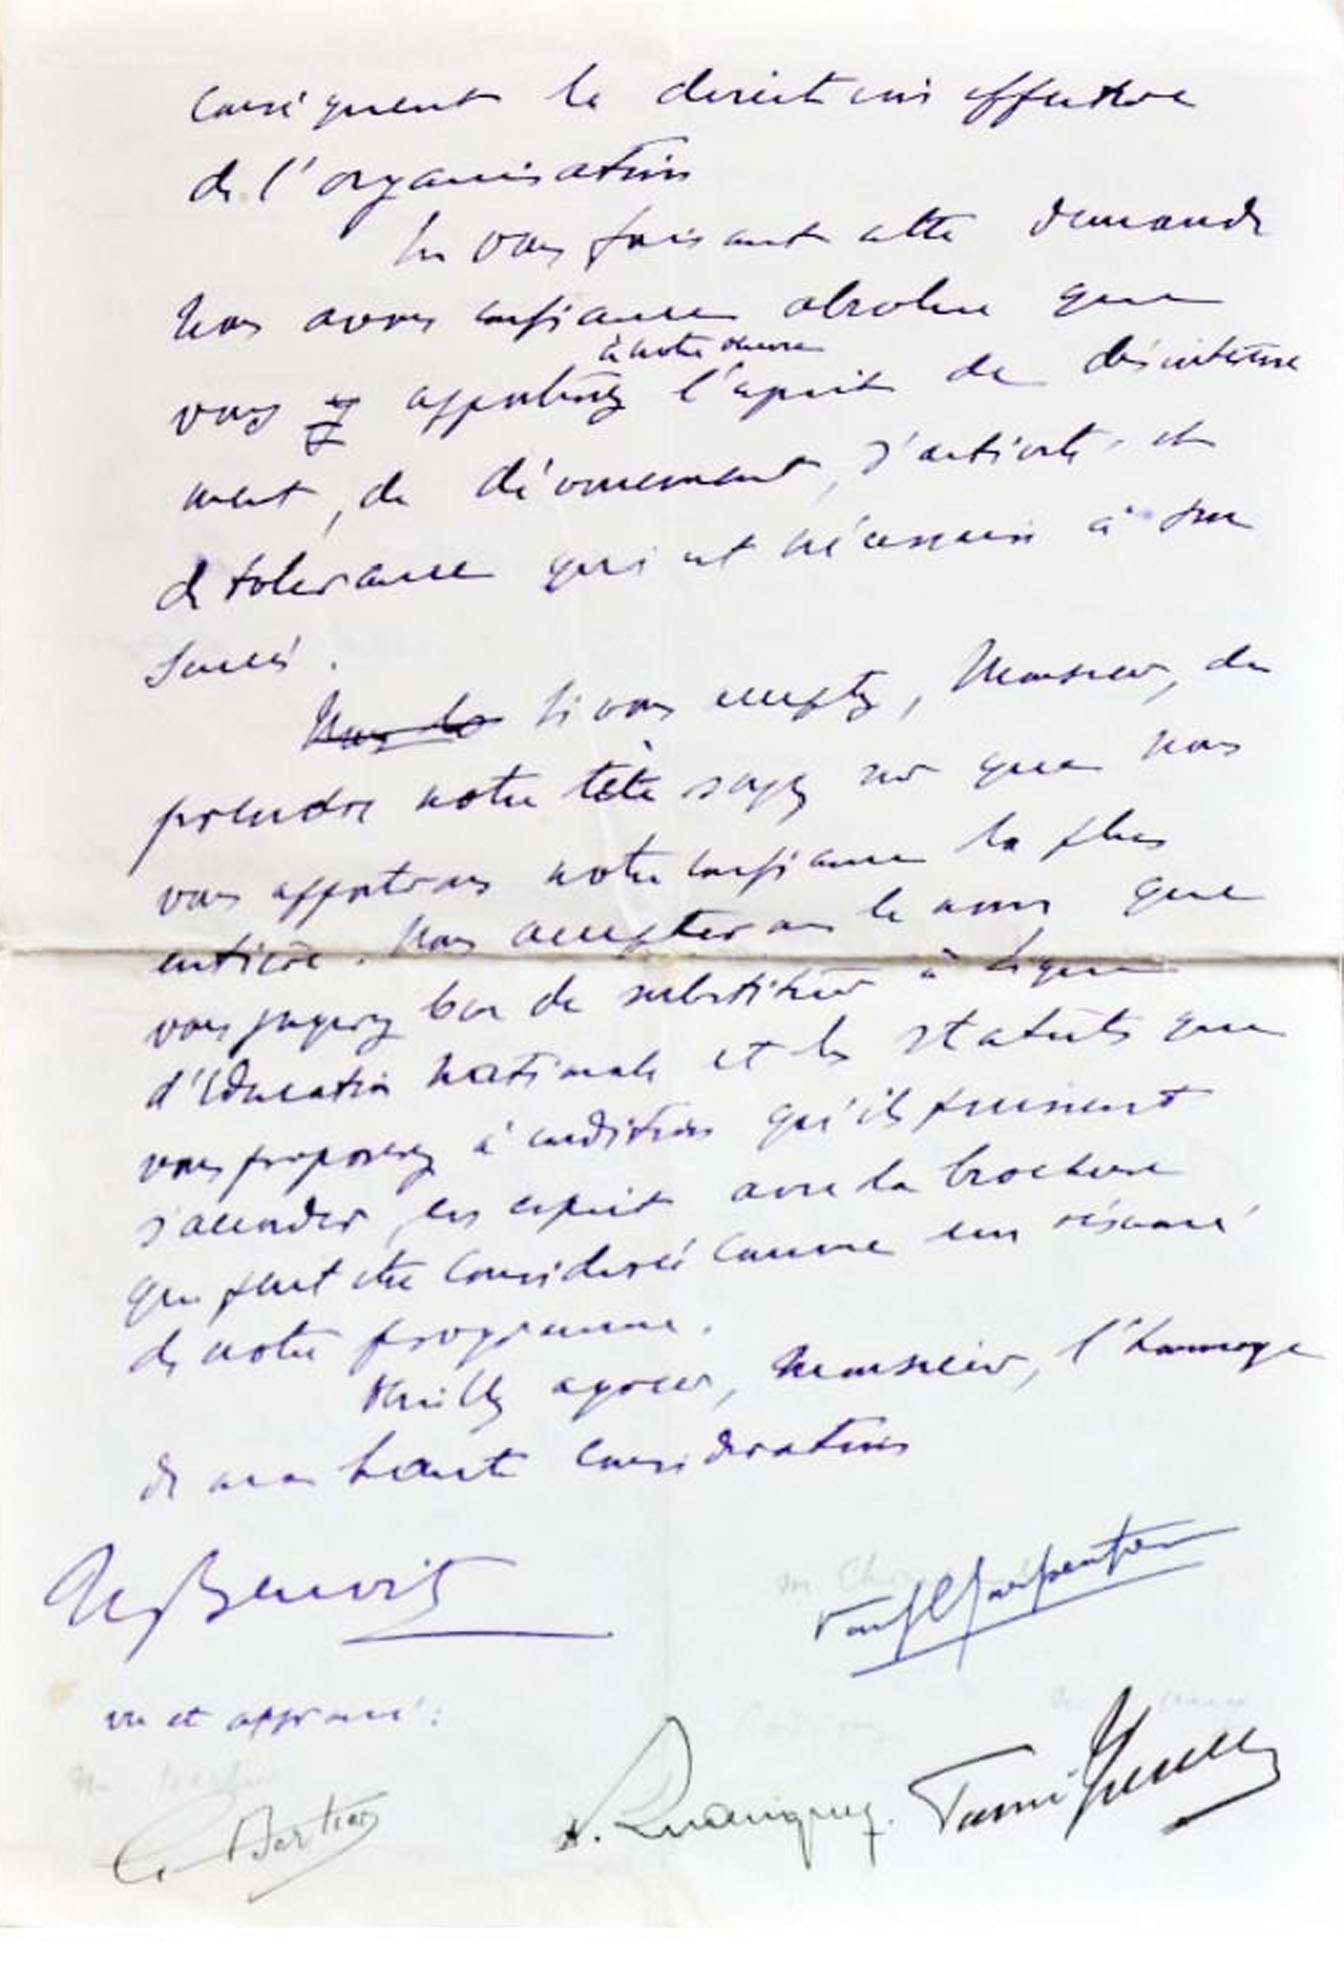 conséquent la direction effective
de l'organisation
En vous faisant cette demande
nous avons confiance absolue que
à notre oeuvre
vous y apporterez l'esprit de désintéresse
ment, de dévouement, d'activité et
de tolérance qui est nécessaire à son
succès.
Nous Si vous acceptez, Monsieur, de
prendre notre tête soyez sûr que nous
vous apporterons notre confiance la plus
entière. Nous accepterons le nom que
vous jugerez bon de substituer à Ligue
d'Education Nationale et les statuts que
vous proposerez à condition qu'ils puissent
s'accorder, en esprit avec la brochure
qui peut être considérée comme un résumé
de notre programme.
Veuillez agréer, Monsieur, l'hommage
de ma haute considération
Benoit
Paul Charpentier
vu et approuvé :
M. Bertier
G. Bertier